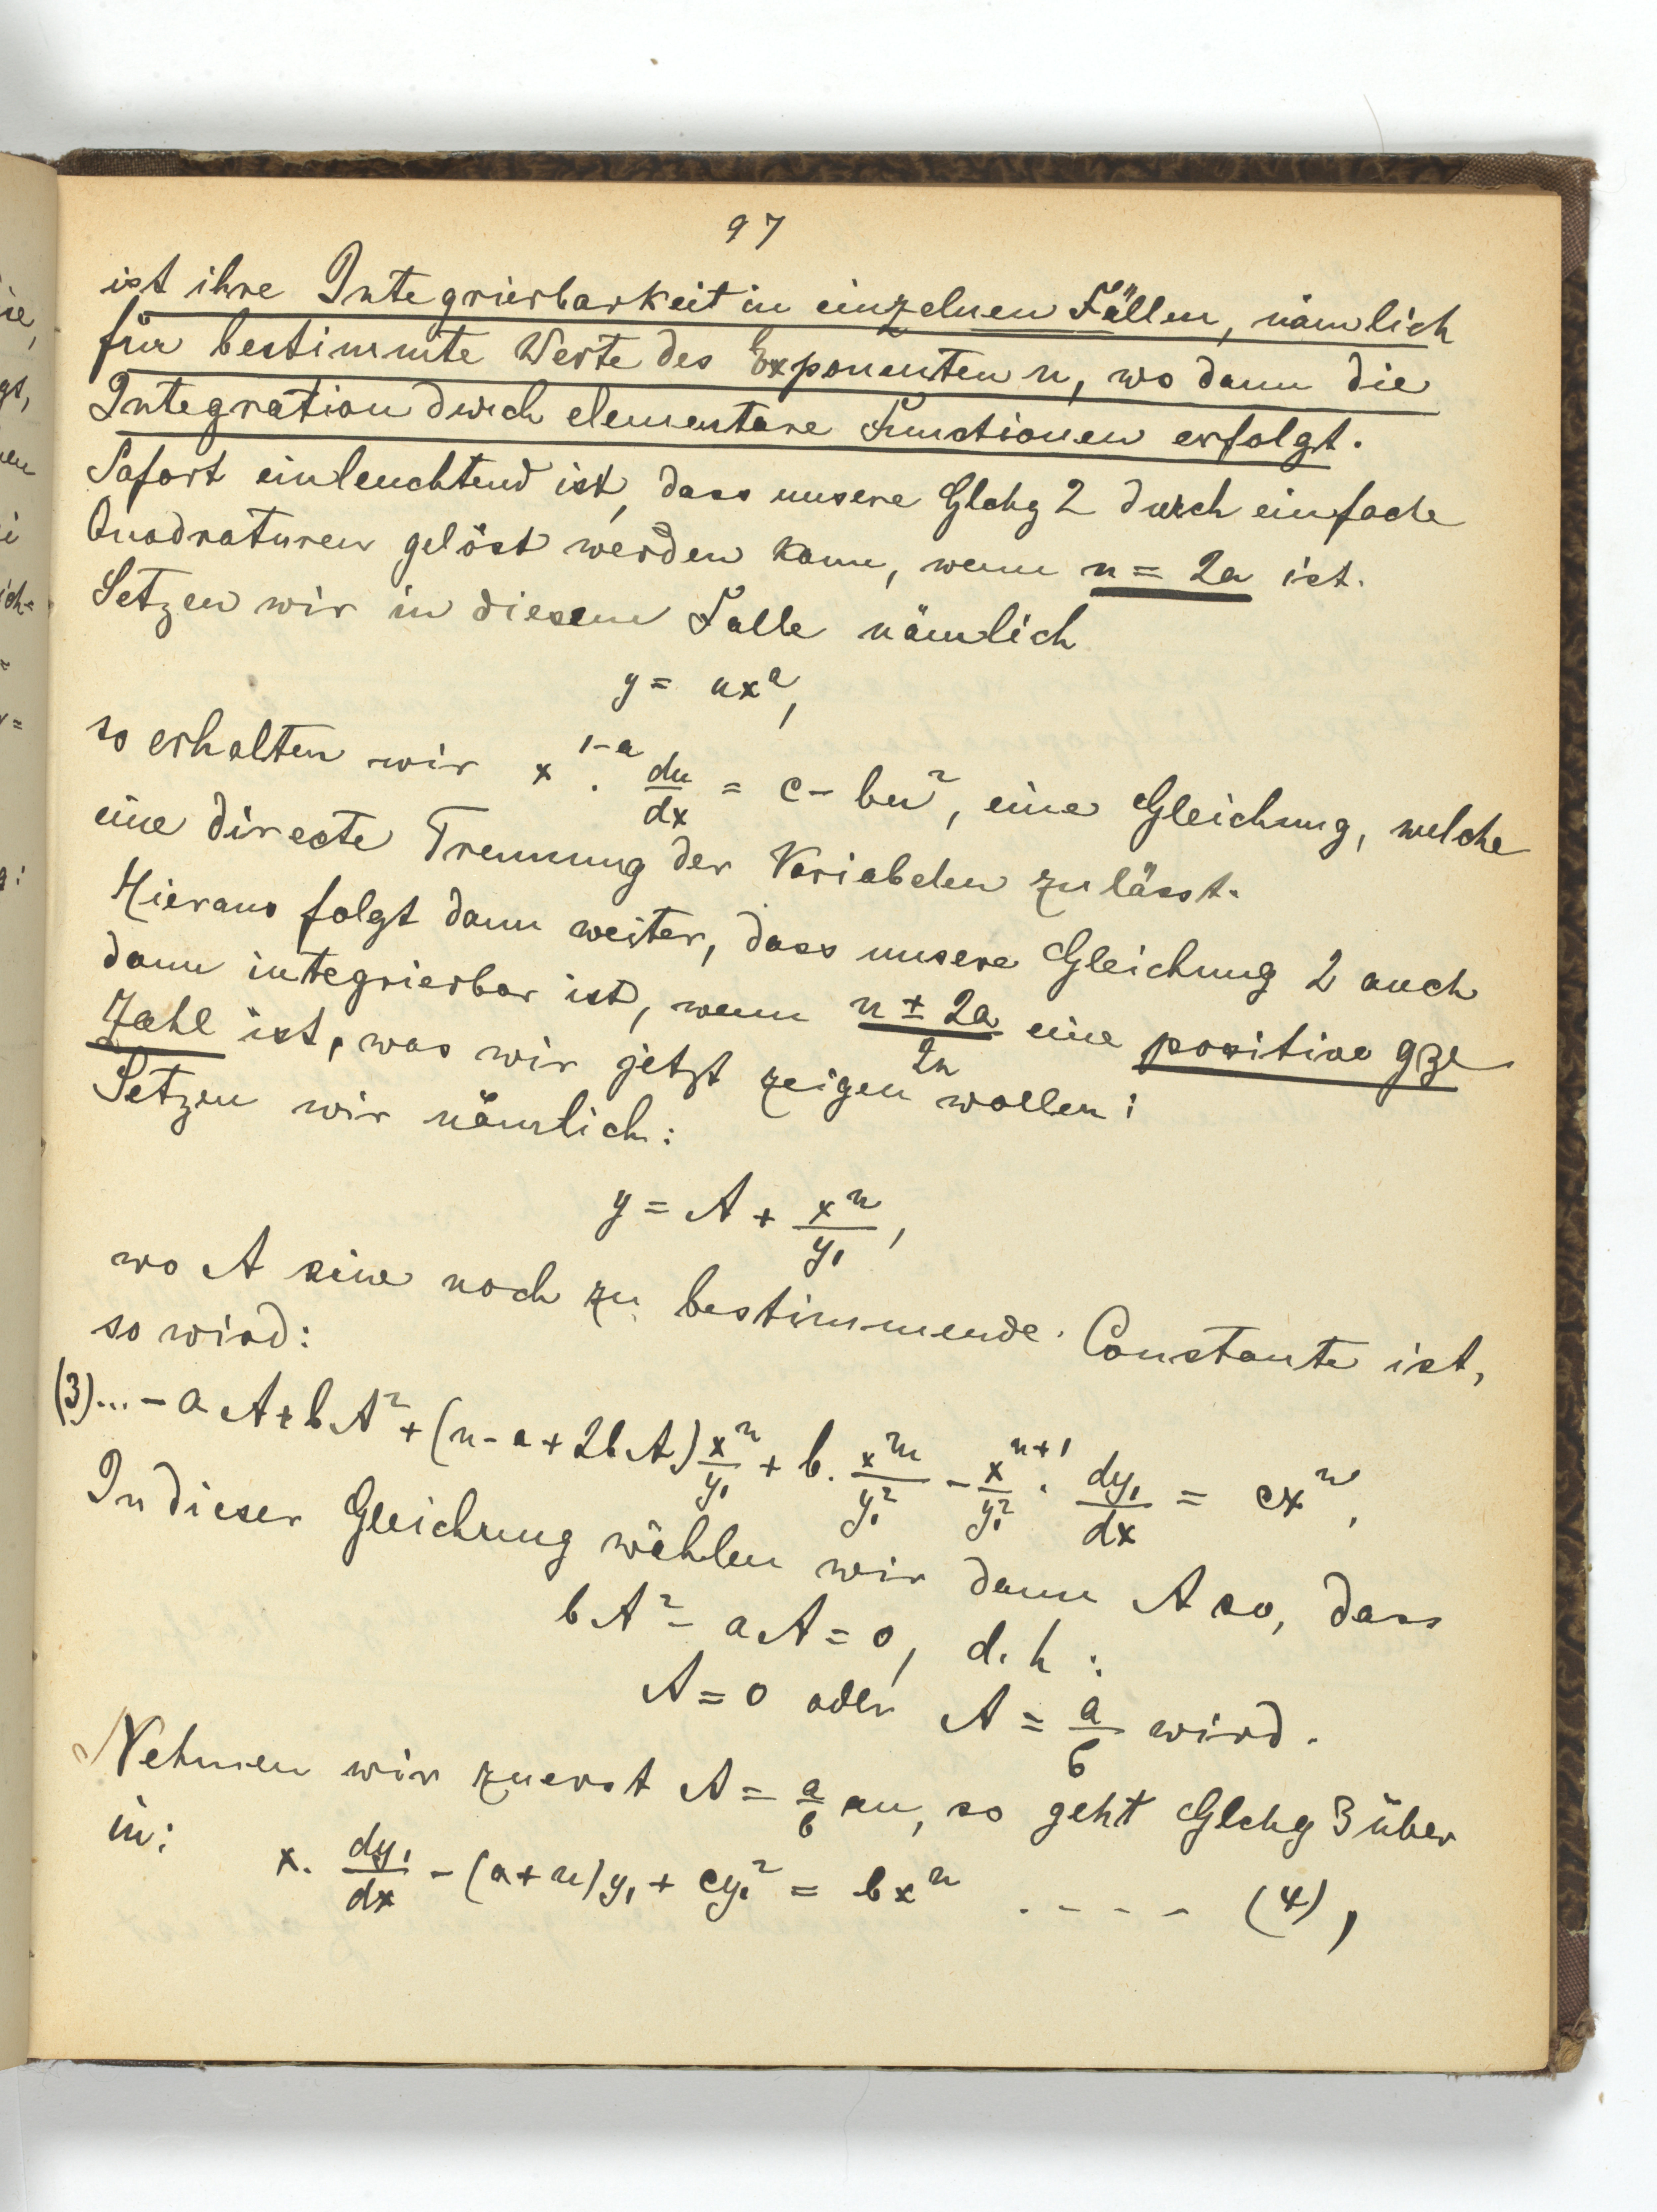 97
ist ihre Integrierbarkeit in einzelnen Fällen, nämlich
für bestimmte Werte des Exponenten n, wo dann die
Integration durch elementare Functionen erfolgt.
Sofort einleuchtend ist, dass unsere Glchg 2 durch einfache
Quadraturen gelöst werden kann, wenn n = 2a ist.
Setzen wir in diesem Falle nämlich
y = ux^a,
so erhalten wir x^{1-a} · du/dx = c - bu², eine Gleichung, welche
eine directe Trennung der Variabelen zulässt.
Hieraus folgt dann weiter, dass unsere Gleichung 2 auch
dann integrierbar ist, wenn (n ± 2a)/2n eine positive gze
Zahl ist, was wir jetzt zeigen wollen:
Setzen wir nämlich:
y = A + x^n/y₁,
wo A eine noch zu bestimmende Constante ist,
so wird:
(3)... - aA + bA² + (n - a + 2bA) x^n/y₁ + b · x^{2n}/y₁² - x^{n+1}/y₁² · dy₁/dx = cx^n.
In dieser Gleichung wählen wir dann A so, dass
bA² - aA = 0, d. h:
A = 0 oder A = a/b wird.
Nehmen wir zuerst A = a/b an, so geht Glchg 3 über
in:
x · dy₁/dx - (a+n)y₁ + cy₁² = bx^n . - - - - (4),